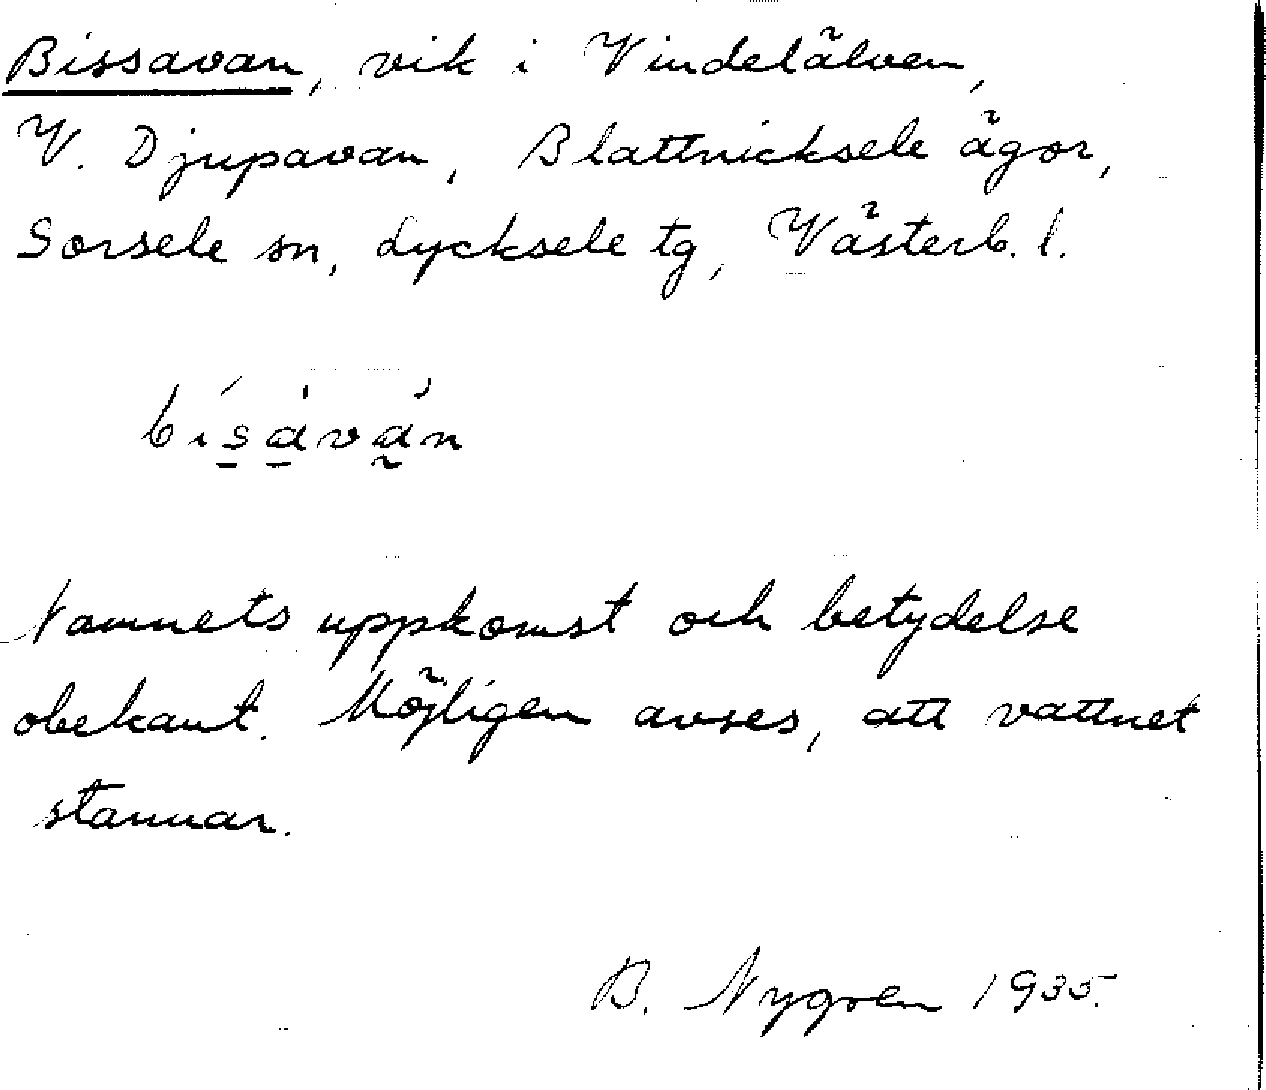 Bissavan, vik i Vindelälven,
V. Djupavan, Blattnicksele ägor,
Sorsele sn, Lycksele tg, Västerb. l.
bisavan
Namnets uppkomst och betydelse
obekant. Möjligen avses, att vattnet
stannar.
B. Nygren 1935.